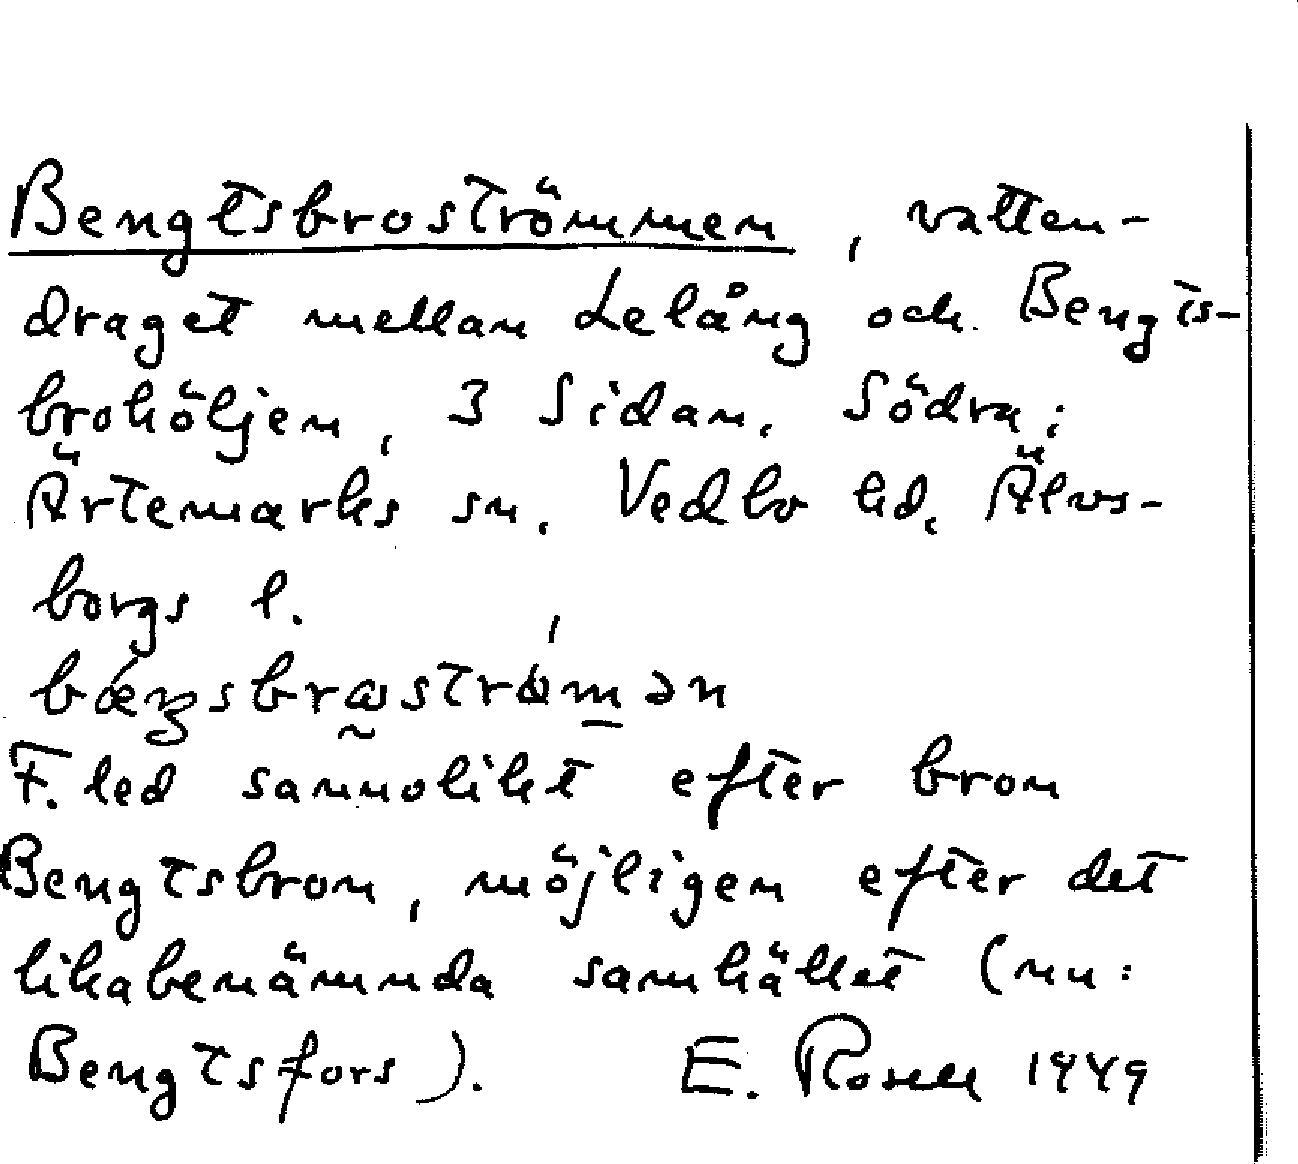 Bengtsbroströmmen, vatten-
draget mellan Lelång och Bengts-
brohöljen, 3 Sidan, Södra;
Ärtemarks sn, Vedbo hd, Älvs-
borgs l.
F. led sannolikt efter bron
Bengtsbron, möjligen efter det
likabenämnda samhället (nu:
Bengtsfors). E. Rosell 1949